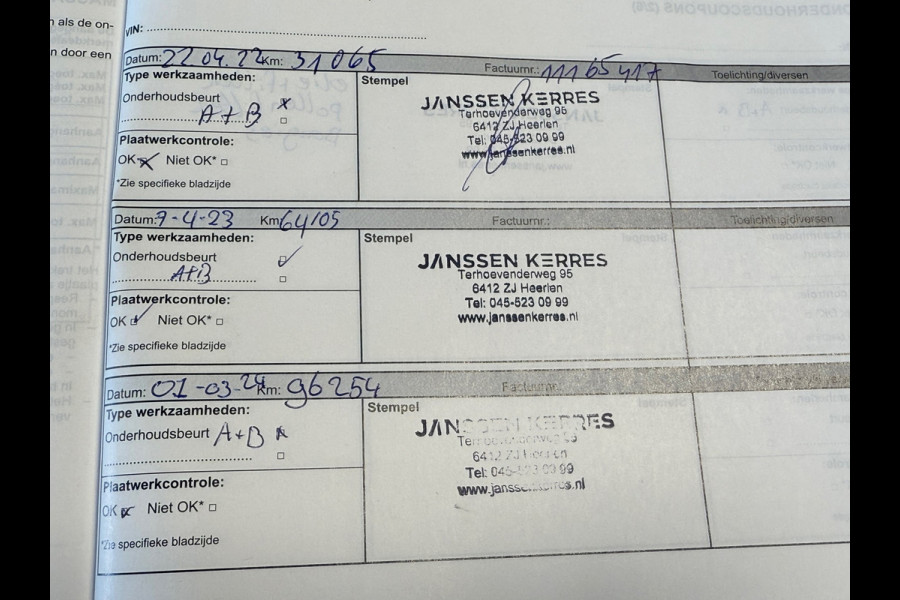 n als de on-
n door een
VIN:
Datum: 22.04.22 Km: 31065 Factuurnr.: 11165417 Toelichting/diversen
Type werkzaamheden:
Stempel
Onderhoudsbeurt x
A+B
Plaatwerkcontrole:
OK x Niet OK*
*Zie specifieke bladzijde
JANSSEN KERRES
Terhoevenderweg 95
6412 ZJ Heerlen
Tel: 045-523 09 99
www.janssenkerres.nl
Datum: 7-4-23 Km: 64105 Factuurnr.: Toelichting/diversen
Type werkzaamheden:
Stempel
Onderhoudsbeurt
A+B
Plaatwerkcontrole:
OK Niet OK*
*Zie specifieke bladzijde
JANSSEN KERRES
Terhoevenderweg 95
6412 ZJ Heerlen
Tel: 045-523 09 99
www.janssenkerres.nl
Datum: 01-03-24 Km: 96254 Factuurnr.:
Type werkzaamheden:
Stempel
Onderhoudsbeurt A+B x
Plaatwerkcontrole:
OK x Niet OK*
*Zie specifieke bladzijde
JANSSEN KERRES
Terhoevenderweg 95
6412 ZJ Heerlen
Tel: 045-523 09 99
www.janssenkerres.nl